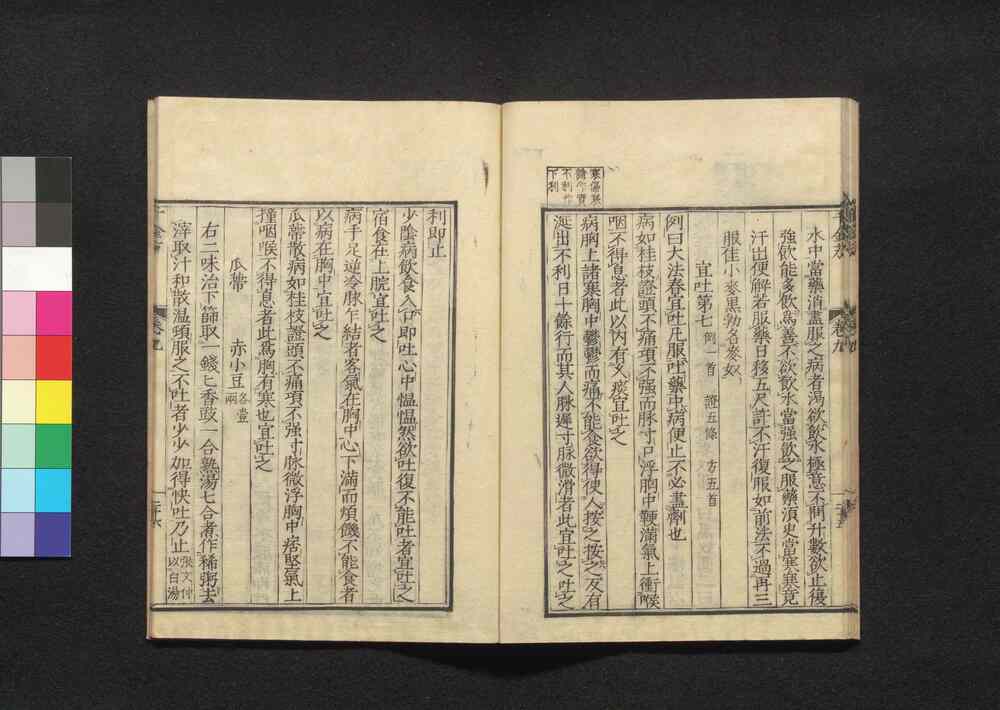 水中當藥消盡服之病者渴欲飲水極意不問升數欲止復
強欲能多飲爲善不欲飲水當强飲之服藥須臾當寒寒竟
汗出便解若服藥日移五尺許不汗復服如前法不過再三
服佳小麥黑勃名麥奴
宜吐第七 例一首 證五條 方五首
例曰大法春宜吐凡服吐藥中病便止不必盡劑也
病如桂枝證頭不痛項不强而脉寸口浮胸中鞕滿氣上衝喉
咽不得息者此以内有久痰宜吐之
病胸上諸寒胸中鬱鬱而痛不能食欲得使人按之按之反有
涎出下利日十餘行而其人脉遲寸脉微滑者此宜吐之吐之
利即止
少陰病飲食入口即吐心中愠愠然欲吐復不能吐者宜吐之
宿食在上脘宜吐之
病手足逆冷脉乍結者客氣在胸中心下滿而煩饑不能食者
以病在胸中宜吐之
瓜蔕散病如桂枝證頭不痛項不强寸脉微浮胸中痞堅氣上
撞咽喉不得息者此爲胸有寒也宜吐之
瓜蔕 赤小豆各壹兩
右二味治下篩取一錢匕香豉一合熟湯七合煮作稀粥去
滓取汁和散温頓服之不吐者少少加得快吐乃止張文仲以白湯